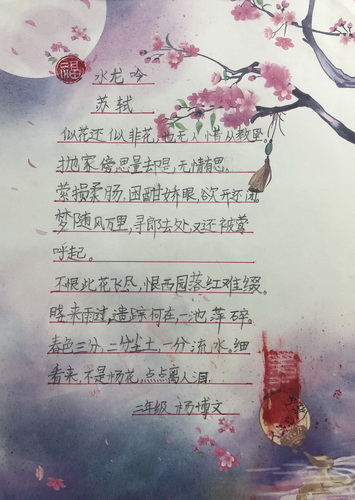 福
水龙吟
苏轼
似花还似非花,也无人惜从教坠。
抛家傍思量却是,无情有思。
萦损柔肠,困酣娇眼,欲开还闭。
梦随风万里,寻郎去处,又还被莺
呼起。
不恨此花飞尽,恨西园落红难缀。
晓来雨过,遗踪何在,一池萍碎。
春色三分,二分尘土,一分流水。细
看来,不是杨花,点点离人泪。
三年级 杨博文